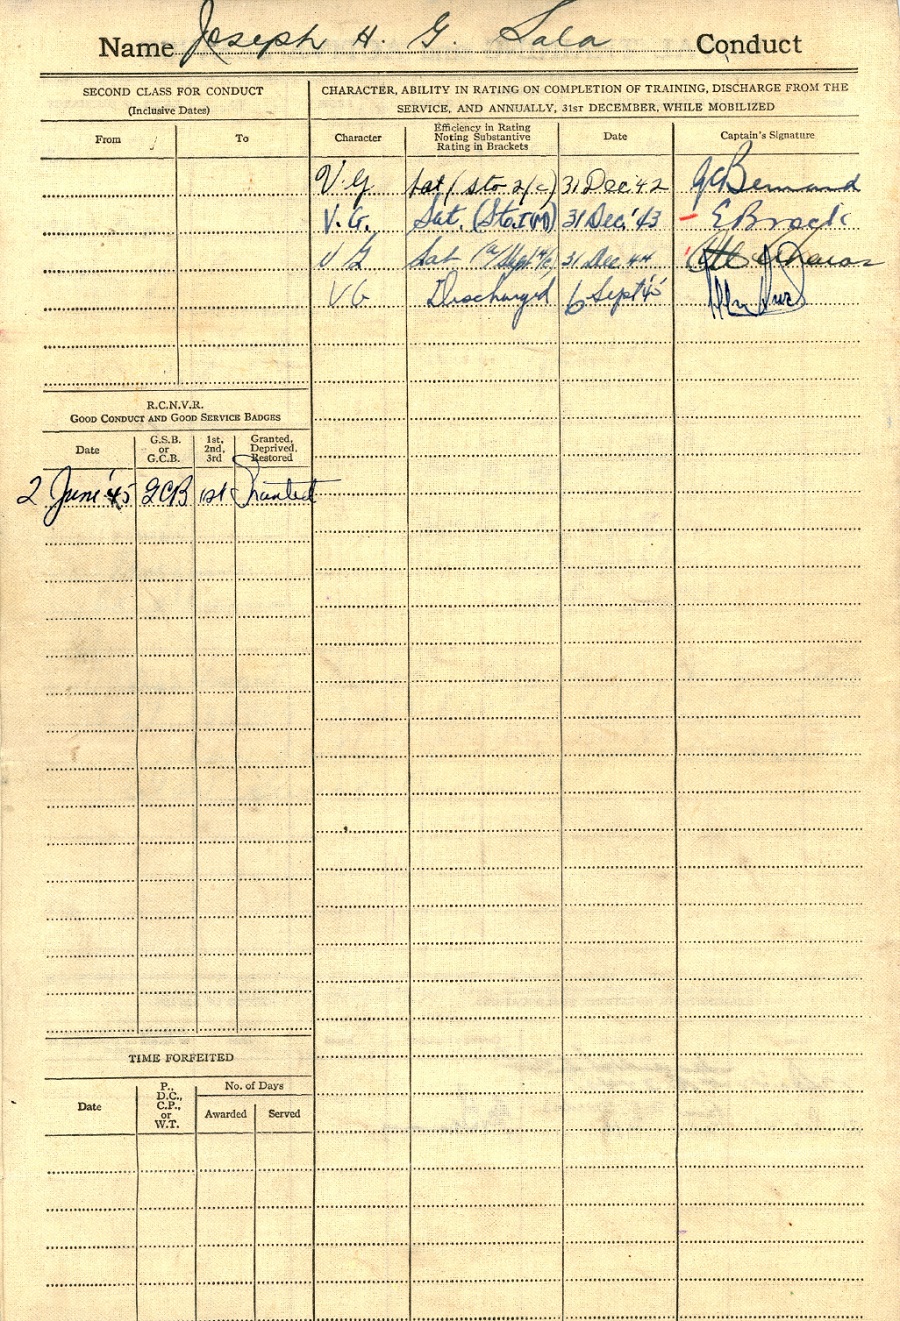 Name Joseph H. G. Lala Conduct
SECOND CLASS FOR CONDUCT
(Inclusive Dates)
From To
CHARACTER, ABILITY IN RATING ON COMPLETION OF TRAINING, DISCHARGE FROM THE
SERVICE, AND ANNUALLY, 31ST DECEMBER, WHILE MOBILIZED
Character
Efficiency in Rating
Noting Substantive
Rating in Brackets
Date
Captain's Signature
V.G. Sat (Sto 2/c) 31 Dec '42
V.G. Sat. 31 Dec. '43 E Brock
V G Sat 31 Dec 44
V G Discharged 6 Sept '45
R.C.N.V.R.
GOOD CONDUCT AND GOOD SERVICE BADGES
Date
G.S.B.
or
G.C.B.
1st,
2nd,
3rd
Granted,
Deprived,
Restored
2 June '45 GCB 1st Granted
TIME FORFEITED
Date
P.,
D.C.,
C.P.,
or
W.T.
No. of Days
Awarded Served